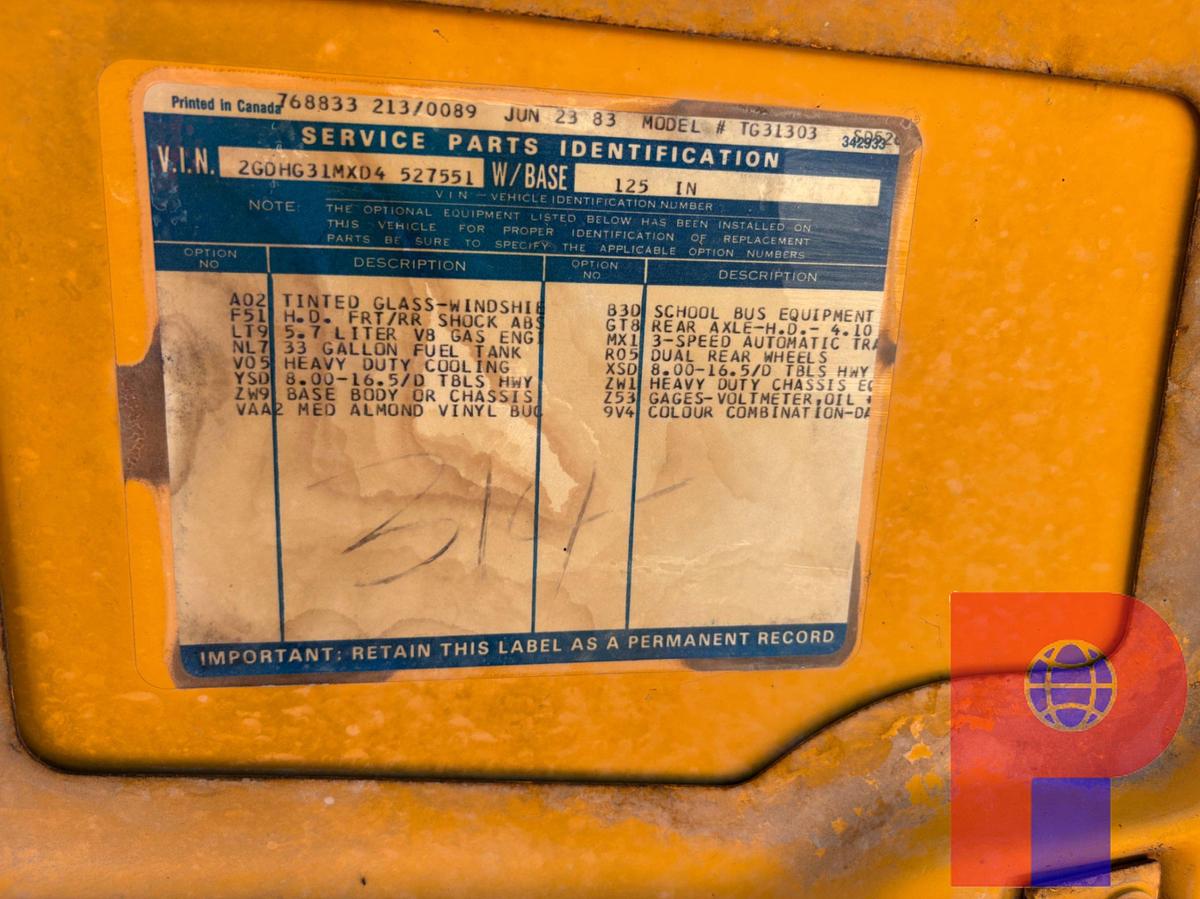 Printed in Canada 768833 213/0089 JUN 23 83 MODEL # TG31303
342933
SERVICE PARTS IDENTIFICATION
V.I.N. 2GDHG31MXD4 527551 W/BASE 125 IN
VIN - VEHICLE IDENTIFICATION NUMBER
NOTE: THE OPTIONAL EQUIPMENT LISTED BELOW HAS BEEN INSTALLED ON
THIS VEHICLE FOR PROPER IDENTIFICATION OF REPLACEMENT
PARTS BE SURE TO SPECIFY THE APPLICABLE OPTION NUMBERS
OPTION NO DESCRIPTION OPTION NO DESCRIPTION
A02 TINTED GLASS-WINDSHIE B3D SCHOOL BUS EQUIPMENT
F51 H.D. FRT/RR SHOCK ABS GT8 REAR AXLE-H.D.- 4.10
LT9 5.7 LITER V8 GAS ENGI MX1 3-SPEED AUTOMATIC TRA
NL7 33 GALLON FUEL TANK R05 DUAL REAR WHEELS
V05 HEAVY DUTY COOLING XSD 8.00-16.5/D TBLS HWY
YSD 8.00-16.5/D TBLS HWY ZW1 HEAVY DUTY CHASSIS EQ
ZW9 BASE BODY OR CHASSIS Z53 GAGES-VOLTMETER,OIL
VAA2 MED ALMOND VINYL BUC 9V4 COLOUR COMBINATION-DA
314
IMPORTANT: RETAIN THIS LABEL AS A PERMANENT RECORD